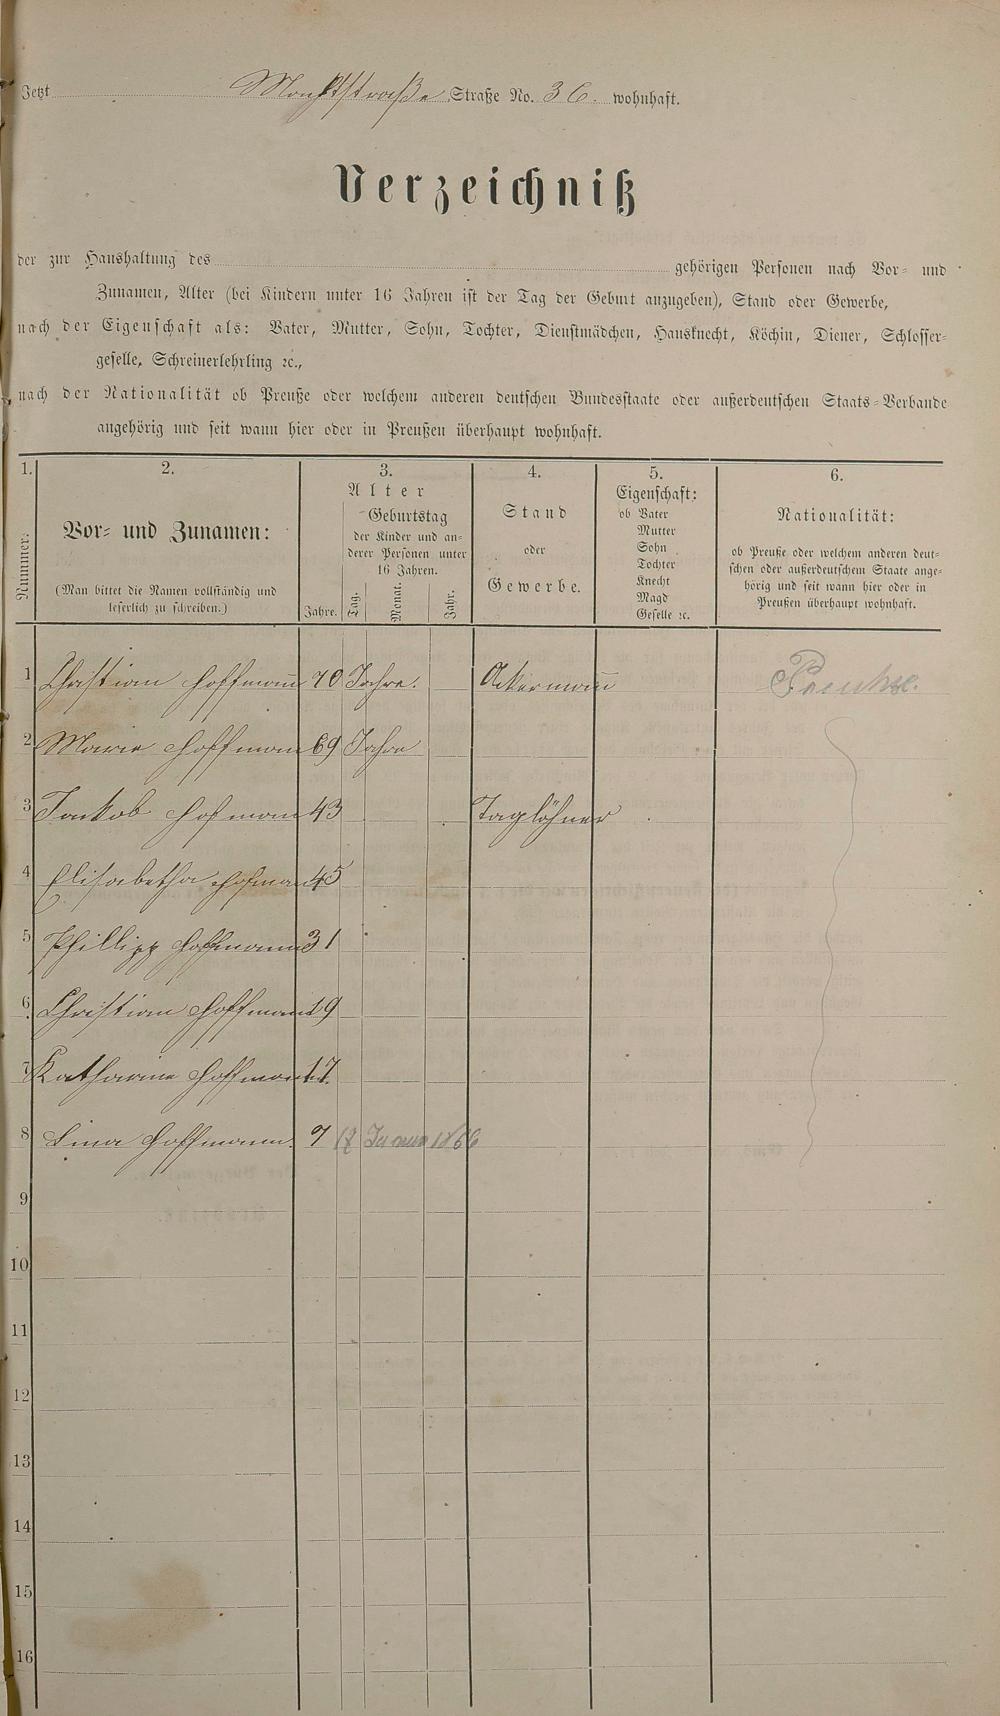 Jetzt Marktstraße Straße No. 36. wohnhaft.
Verzeichniß
der zur Haushaltung des gehörigen Personen nach Vor- und
Zunamen, Alter (bei Kindern unter 16 Jahren ist der Tag der Geburt anzugeben), Stand oder Gewerbe,
nach der Eigenschaft als: Vater, Mutter, Sohn, Tochter, Dienstmädchen, Hausknecht, Köchin, Diener, Schlosser-
geselle, Schreinerlehrling ꝛc.,
nach der Nationalität ob Preuße oder welchem anderen deutschen Bundesstaate oder außerdeutschen Staats-Verbande
angehörig und seit wann hier oder in Preußen überhaupt wohnhaft.
1. 2. 3. 4. 5. 6.
Nummer.
Vor- und Zunamen:
(Man bittet die Namen vollständig und
leserlich zu schreiben.)
Alter
Geburtstag
der Kinder und an-
derer Personen unter
16 Jahren.
Jahre. Tag. Monat. Jahr.
Stand
oder
Gewerbe.
Eigenschaft:
ob Vater
Mutter
Sohn
Tochter
Knecht
Magd
Geselle ꝛc.
Nationalität:
ob Preuße oder welchem anderen deut-
schen oder außerdeutschem Staate ange-
hörig und seit wann hier oder in
Preußen überhaupt wohnhaft.
1 Christian Hoffmann 70 Jahre. Akermann Preuhse.
2 Marie Hoffmann 69 Jahre
3 Jankob Hofmann 43 Taglöhner
4 Elisabetha Hofmann 45
5 Phillipp Hoffmann 31
6 Christian Hoffmann 19
7 Katharine Hoffmann 17.
8 Lina Hoffmann. 7 18 Januar 1866
9
10
11
12
13
14
15
16